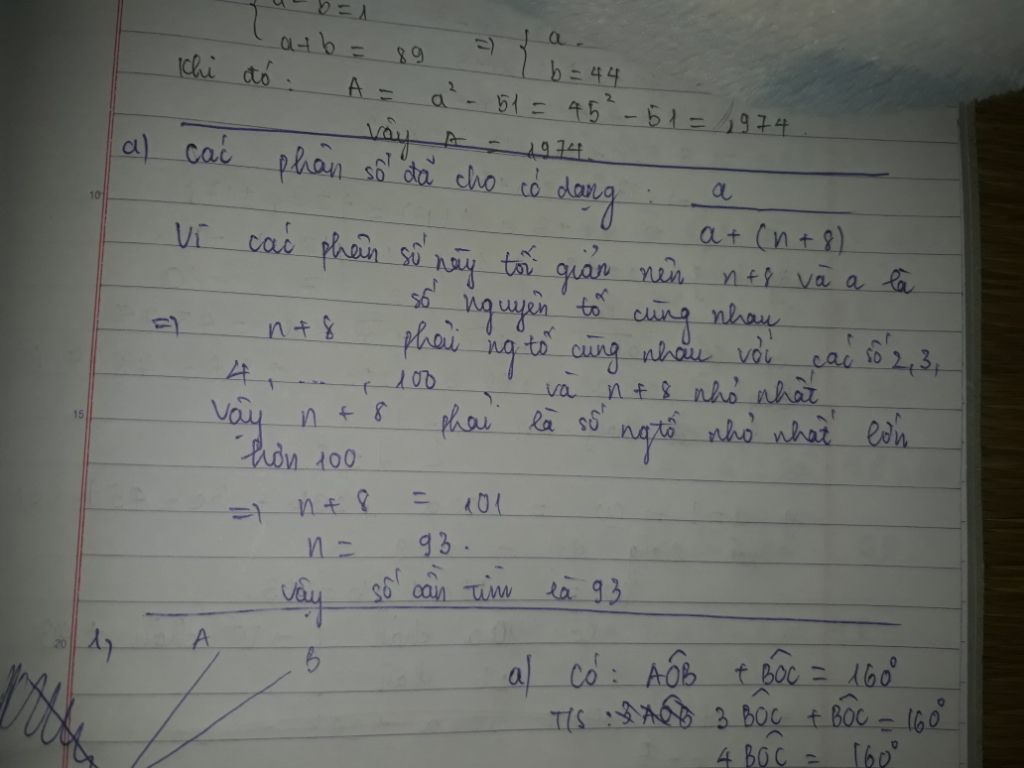 a - b = 1
a + b = 89 => { a.
b = 44
Khi đó: A = a² - 51 = 45² - 51 = 1974.
Vậy A = 1974.
a) các phân số đã cho có dạng: a / a + (n + 8)
Vì các phân số này tối giản nên n + 8 và a là
số nguyên tố cùng nhau
=> n + 8 phải ngtố cùng nhau với các số 2, 3,
4, ..., 100 và n + 8 nhỏ nhất
Vậy n + 8 phải là số ngtố nhỏ nhất lớn
hơn 100
=> n + 8 = 101
n = 93.
Vậy số cần tìm là 93
1, A
B
a) Có: AÔB + BÔC = 160°
3 BÔC + BÔC = 160°
4 BÔC = 160°